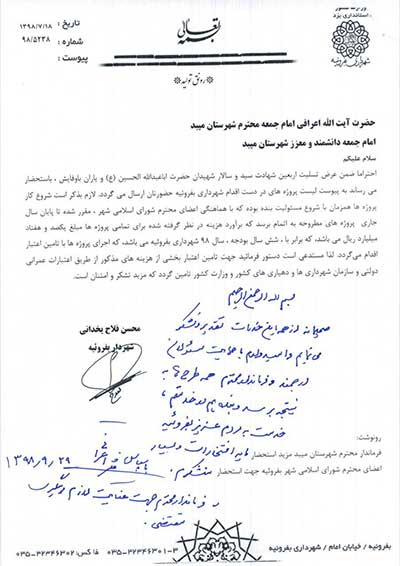 بسمه تعالی
وزارت کشور
استانداری یزد
شهرداری بفروئیه
تاریخ : ۱۳۹۸/۷/۱۸
شماره : ۹۸/۵۲۳۸
پیوست :
رونق تولید
حضرت آیت الله اعرافی امام جمعه محترم شهرستان میبد
امام جمعه دانشمند و معزز شهرستان میبد
سلام علیکم
احتراما ضمن عرض تسلیت اربعین شهادت سید و سالار شهیدان حضرت اباعبدالله الحسین (ع) و یاران باوفایش ، باستحضار
می رساند به پیوست لیست پروژه های در دست اقدام شهرداری بفروئیه حضورتان ارسال می گردد. لازم بذکر است شروع کار
پروژه ها همزمان با شروع مسئولیت بنده بوده که با هماهنگی اعضای محترم شورای اسلامی شهر ، مقرر شده تا پایان سال
جاری پروژه های مطروحه به اتمام برسد که برآورد هزینه در نظر گرفته شده برای تمامی پروژه ها مبلغ یکصد و هفتاد
میلیارد ریال می باشد، که برابر با ، شش سال بودجه ، سال ۹۸ شهرداری بفروئیه می باشد، که اجرای پروژه ها با تامین اعتبار
اقدام می‌گردد. لذا مستدعی است دستور فرمائید جهت تامین اعتبار بخشی از هزینه های مذکور از طریق اعتبارات عمرانی
دولتی و سازمان شهرداری ها و دهیاری های کشور و وزارت کشور تامین گردد که مزید تشکر و امتنان است.
محسن فلاح یخدانی
شهردار بفروئیه
بسم الله الرحمن الرحیم
صمیمانه از همه این خدمات تقدیر و تشکر
می نمایم و امیدوارم با حمایت مسئولان
ارجمند و فرماندار محترم همه طرح ها به
نتیجه برسد
خدمت به مردم عزیز بفروئیه
مایه افتخار است و بسیار
متشکرم.
۱۳۹۸/۹/۲۹
فرماندار محترم جهت عنایت لازم و پیگیری
مقتضی.
رونوشت:
فرماندار محترم شهرستان میبد مزید استحضار
اعضای محترم شورای اسلامی شهر بفروئیه جهت استحضار
بفروئیه / خیابان امام / شهرداری بفروئیه
۰۳۵-۳۲۳۴۶۳۰۱-۳ فاکس: ۰۳۵-۳۲۳۴۶۳۰۲